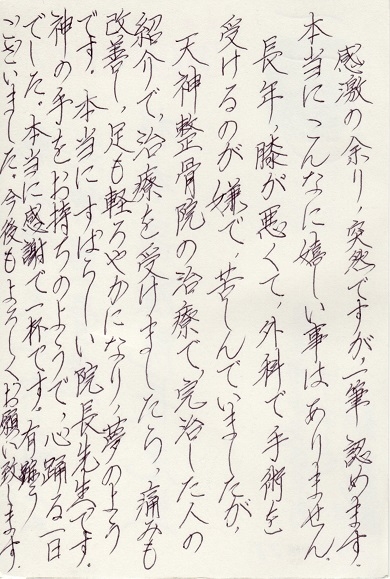 感激の余り、突然ですが、一筆認めます。
本当にこんなに嬉しい事はありません。
長年、膝が悪くて、外科で手術を
受けるのが嫌で、苦しんでいましたが、
天神整骨院の治療で、完治した人の
紹介で、治療を受けましたら、痛みも
改善し、足も軽ろやかになり、夢のよう
です。本当にすばらしい院長先生です。
神の手をお持ちのようで、心踊る一日
でした。本当に感謝で一杯です。有難う
ございました。今後もよろしくお願い致します。